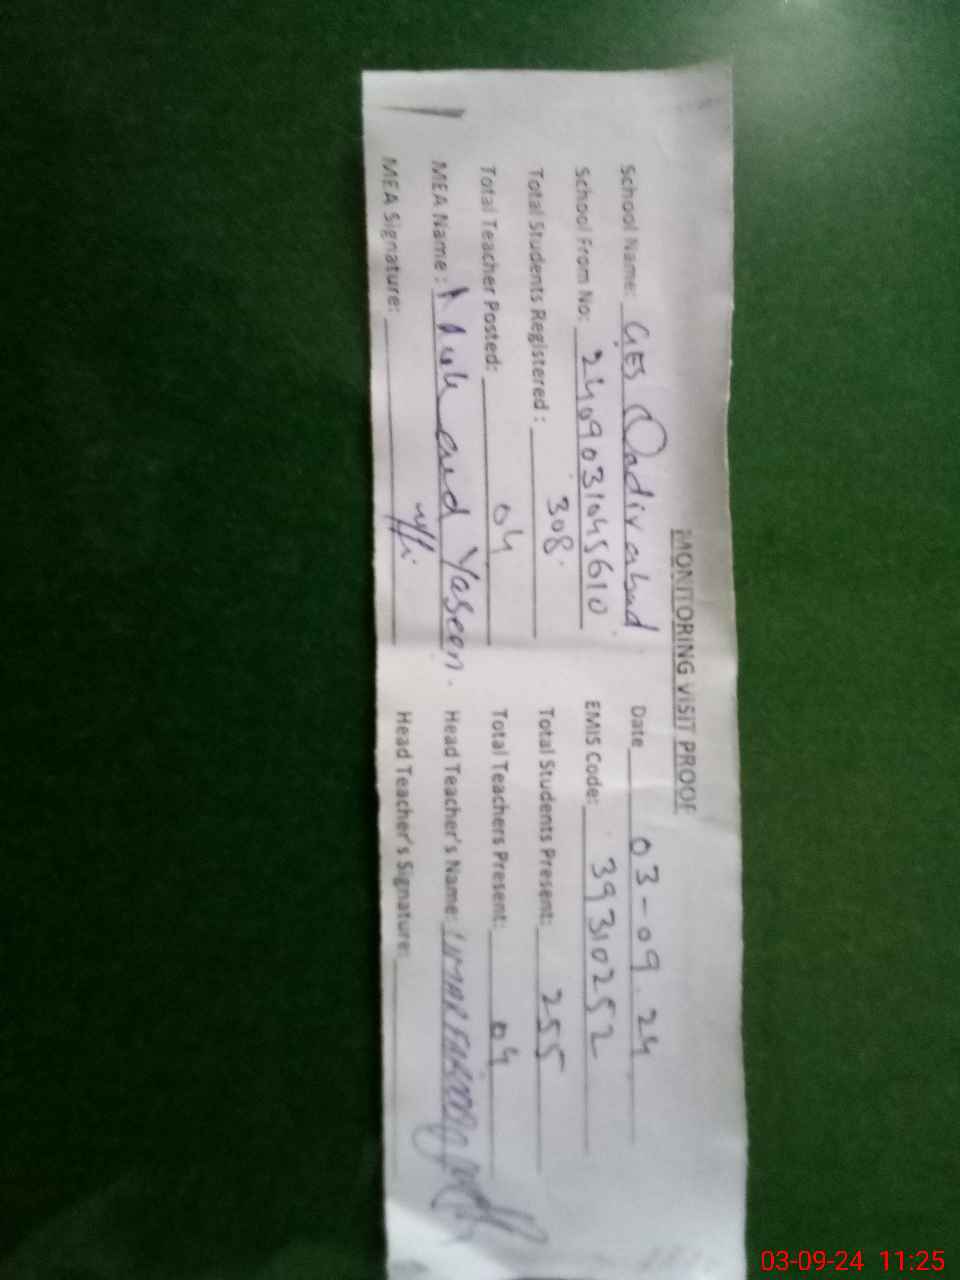 MONITORING VISIT PROOF
School Name: GES Qadir abad Date 03-09.24
School From No: 2409031045610 EMIS Code: 39310252
Total Students Registered : 308 Total Students Present: 255
Total Teacher Posted: 04 Total Teachers Present: 04
MEA Name : Yaseen. Head Teacher's Name: UMAR FAROOQ
MEA Signature: Head Teacher's Signature:
03-09-24 11:25